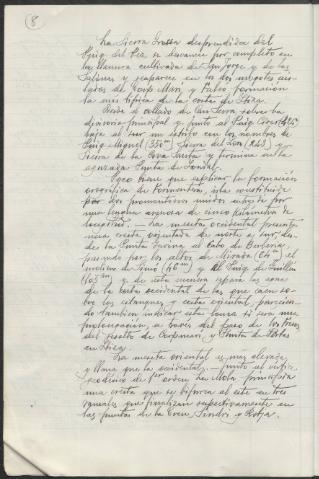 8
La Sierra Grossa desprendida del
Puig del Rey se disuelve por completo en
la llanura cultivada de San Jorge y de las
Salinas y reaparece en los dos islotes ais-
lados de Corp Mari y Falcó formación
la más típica de la costa de Ibiza.
Desde el collado de San José vuelve la
divisoria principal y junto al Puig
baja al Sur un estribo con los nombres de
Puig Miguel (350m) Sierra del (243) y
Sierra de la Cova Santa y termina en la
aguzada Punta de
Poco tiene que explicar la formación
orográfica de Formentera, isla constituida
por dos promontorios unidos entre sí por
una lengua arenosa de cinco kilómetros de
longitud. — La meseta occidental presenta
una cresta orientada de norte a sur, des-
de la Punta Gavina al Cabo de Berbería,
pasando por los altos de Miranda (64m) el
molino de (46m) y el Puig de Guillen
(103m) y de esta manera separa la zona
de la costa occidental de las que caen so-
bre los estanques y costa oriental, parecien-
do también indicar esta línea si sería una
prolongación, a través del paso de los Freus
del islote de Espalmador, y Punta de Portas
en Ibiza.
La meseta oriental es muy elevada
y llana que la occidental, — junto al vértice
geodésico de 1er orden La Mola principia
una cresta que se bifurca al este en tres
ramales que finalizan respectivamente en
las puntas de la Creu, y Rotja.